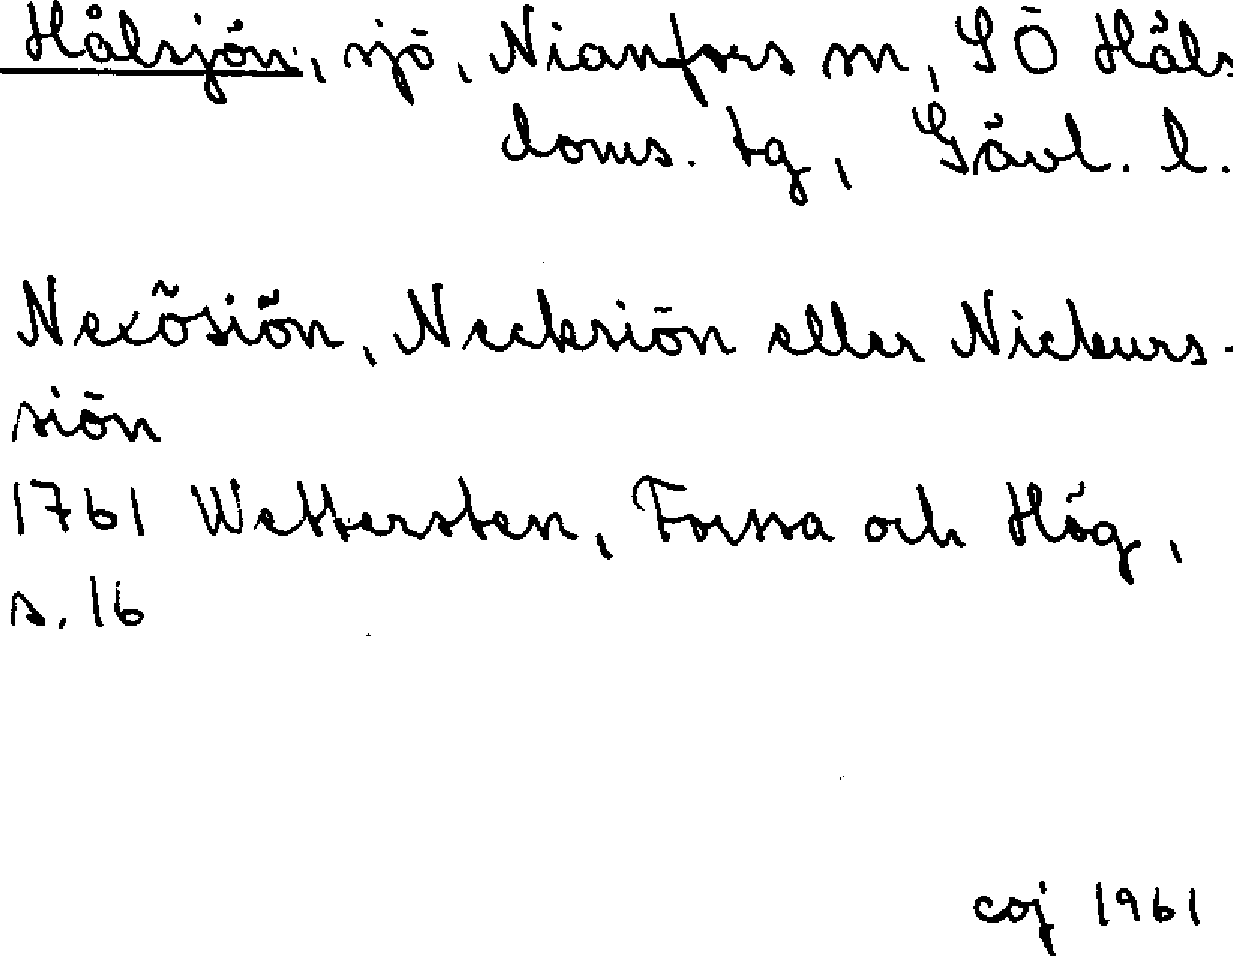 Hålsjön, sjö, Nianfors sn, SÖ Häls
doms. tg, Gävl. l.
Nexösiön, Necksiön eller Nickurs-
siön
1761 Wettersten, Forssa och Hög,
s. 16
coj 1961